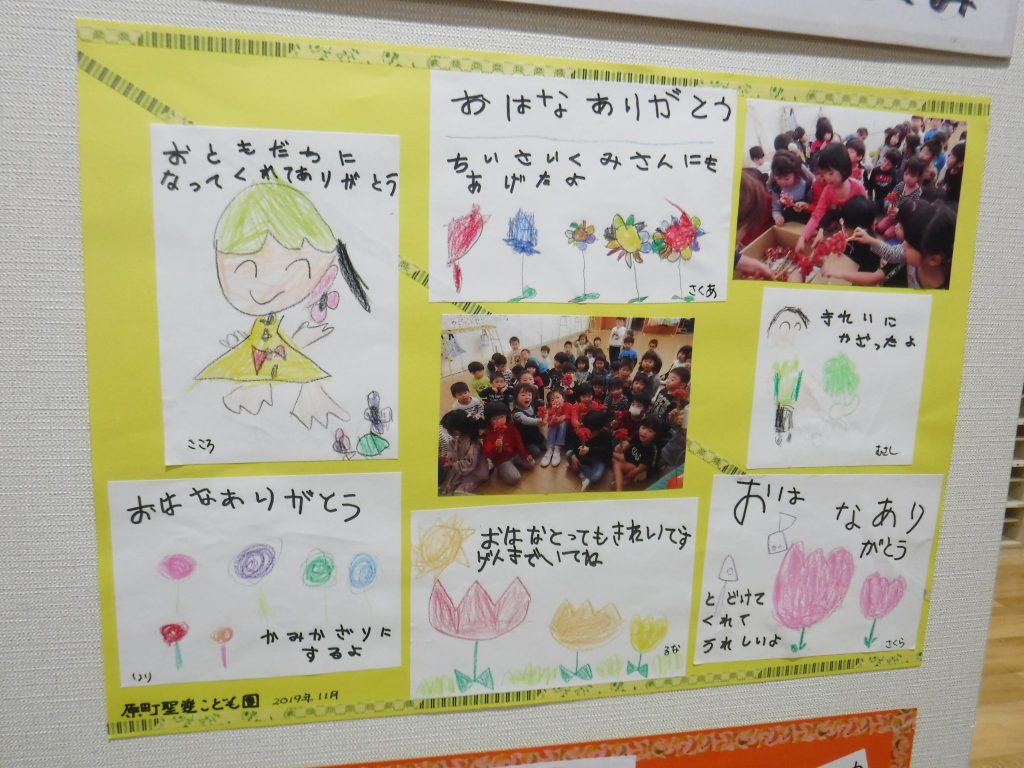 おともだちに
なってくれてありがとう
こころ
おはなありがとう
ちいさいくみさんにも
あげたよ
さくあ
きれいに
かざったよ
むさし
おはなありがとう
かみかざりに
するよ
おはなとってもきれいです
げんきでいてね
るな
おはなあり
がとう
とどけて
くれて
うれしいよ
さくら
原町聖愛こども園 2019年11月